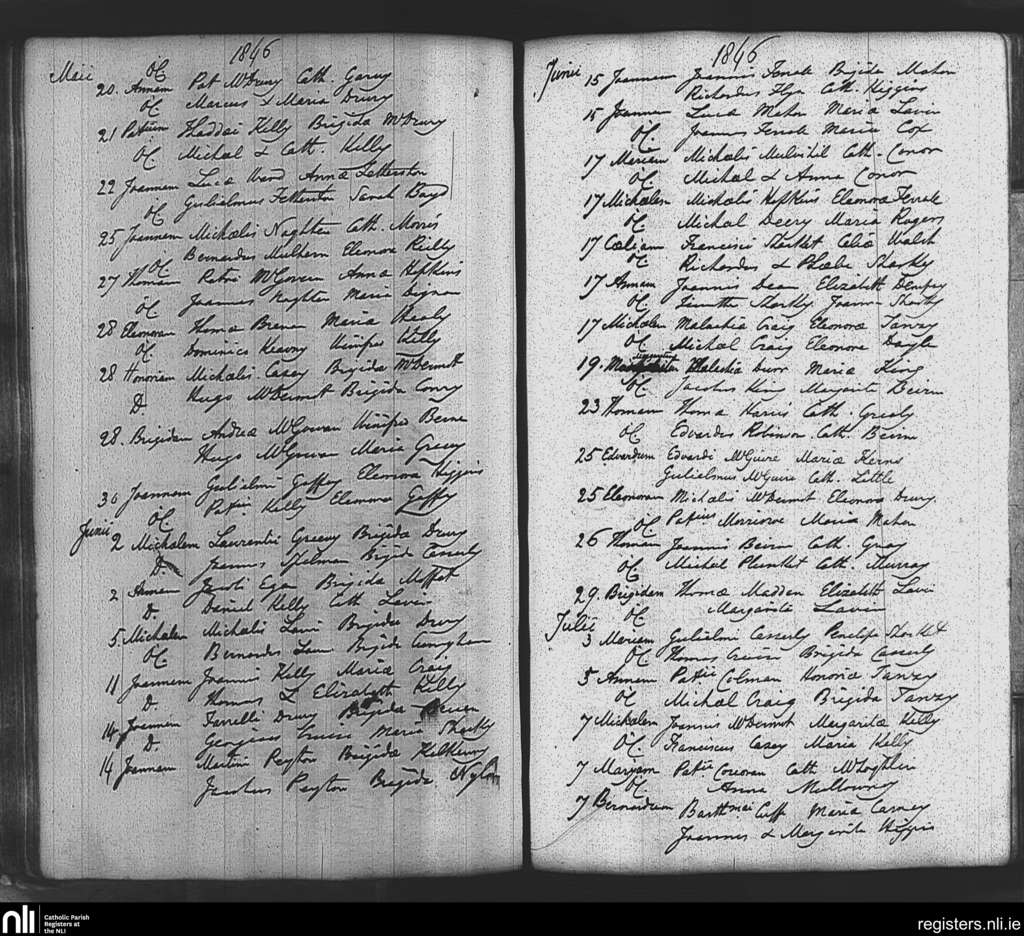 1846
Maii 20. Annam Pat McDrury Cath. Garvy
OC Marcus & Maria Drury
21 Patium Thaddei Kelly Brigida McDrury
OC Michael & Cath. Kelly
22 Joannem Luca Ward Anna Fetherston
OC Gulielmus Fetherston Sarah
25 Joannem Michaelis Naghten Cath. Morris
OC Bernardus Mulhern Elenora Reilly
27 Thomam Petri McGovern Anna Hopkins
OC Joannes Naghten Maria Dignan
28 Elenoram Thoma Brenan Maria Healy
OC Dominics Kearny Winifred Kelly
28 Honoriam Michaelis Casey Brigida McDermott
D Hugo McDermot Brigida Conry
28. Brigidam Andrea McGowan Winifred Beirne
Hugo McGowan Maria Greevy
30 Joannem Gulielmi Goffey Elenora Higgins
OC Patiu Kelly Elenora Goffy
Junii 2 Michalem Laurentii Greevy Brigida Drury
D. Joannes Spelman Brigida Casserly
2 Annam Jacobi Egan Brigida Moffat
D. Daniel Kelly Cath Lavin
5. Michalem Michaelis Lavin Brigida Drury
OC. Bernardus Brigida Cunnigham
11 Joannem Joannis Kelly Maria Craig
D. Thomas & Elizabeth Kelly
14 Joannem Farrelli Drury Brigida
D. Georgius Maria Sharkly
14 Joannem Martini Peyton Brigida Kilkenny
Jacobus Peyton Brigida Nylon
1846
Junii 15 Joannem Joannis Ferrale Brigida Mahon
Richardus Flyn Cath. Higgins
15 Joannem Luca Mahon Maria Lavin
OC. Joannes Ferrale Maria Cox
17 Mariam Michaelis Mulvihil Cath. Conor
OC Michael & Anna Conor
17 Michalem Michaelis Hopkins Elenora Ferrale
OC Michael Deery Maria Rogers
17 Celiam Francisci Celia Walsh
OC Richardus & Phoebe Sharkly
17 Annam Joannis Dean Elizabeth Dempsy
OC Timoth Sharkly Joanna Sharkly
17 Michalem Malachia Craig Elenora Tanzy
OC Michael Craig Elenora Doyle
19. Malachia Durr Maria King
OC Jacobus King Margarita Beirn
23 Thomam Thoma Harris Cath. Grealy
OC Edvardus Robinson Cath. Beirne
25 Edvardum Edvardi McGuire Maria Kerns
Gulielmus McGuire Cath. Little
25 Elenoram Michalis McDermot Elenora Drury.
OC Patius Morrisroe Maria Mahon
26 Thomam Joannis Beirn Cath. Gray
OC Michael Plunket Cath. Murray
29. Brigidam Thoma Madden Elizabeth Lavin
OC Margarita Lavin
Julii 3 Mariam Gulielmi Casserly Penelope
OC. Thomas Brigida Casserly
5 Annam Patii Colman Honoria Tanzy
OC Michael Craig Brigida Tanzy
7 Michalem Joannis McDermot Margarita Kelly
OC. Franciscus Casey Maria Kelly
7 Mariam Patii Corcoran Cath McLoghlin
OC Anna Mullowny
7 Bernardum Barthmai Cuff Maria Carney
Joannes & Margarita Higgins
nli
Catholic Parish
Registers at
the NLI
registers.nli.ie